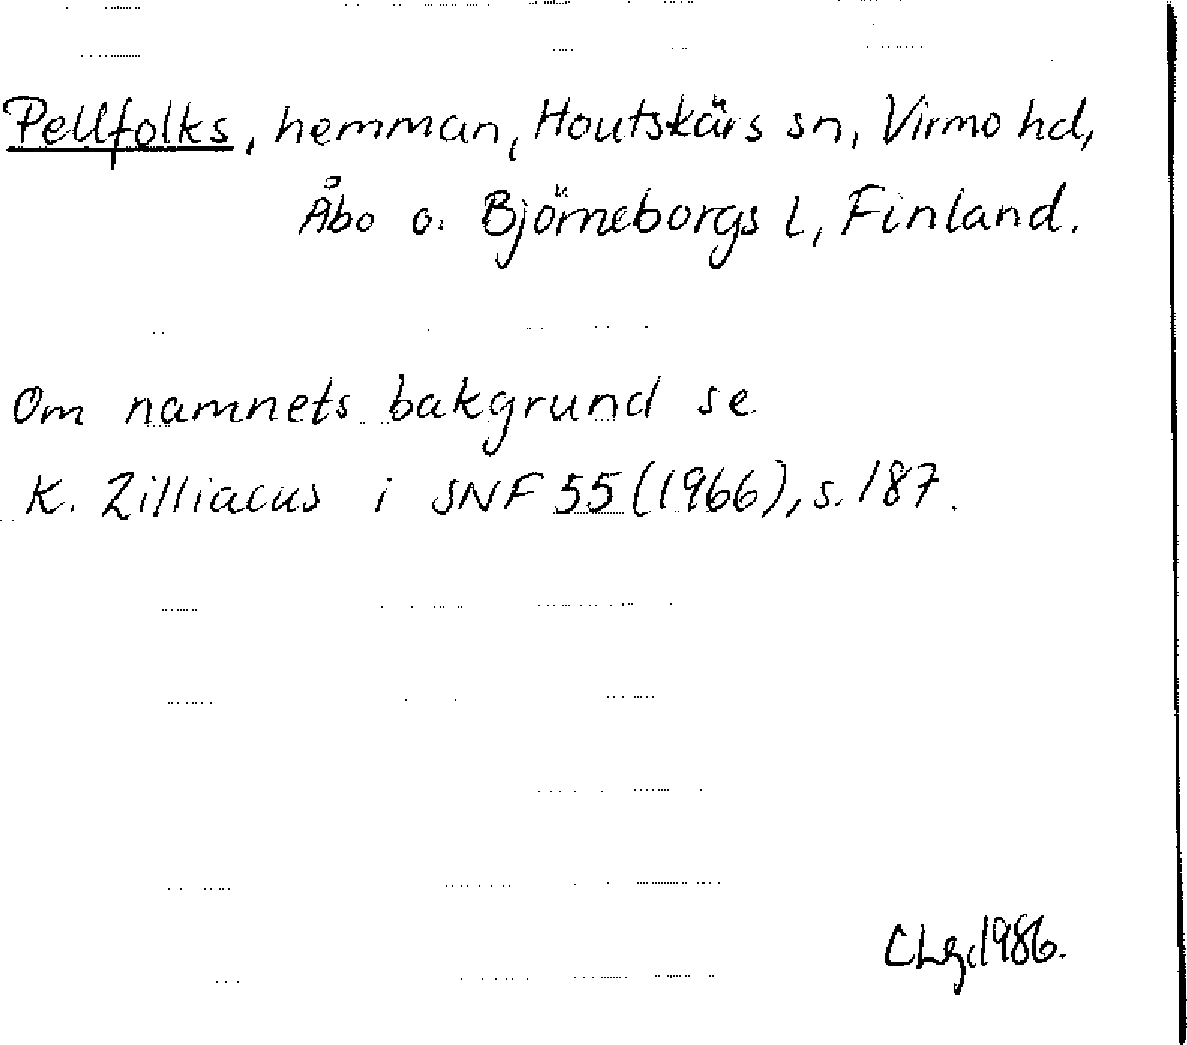 Pellfolks, hemman, Houtskärs sn, Virmo hd,
Åbo o. Björneborgs l, Finland.
Om namnets bakgrund se
K. Zilliacus i SNF 55 (1966), s. 187.
CLg, 1986.